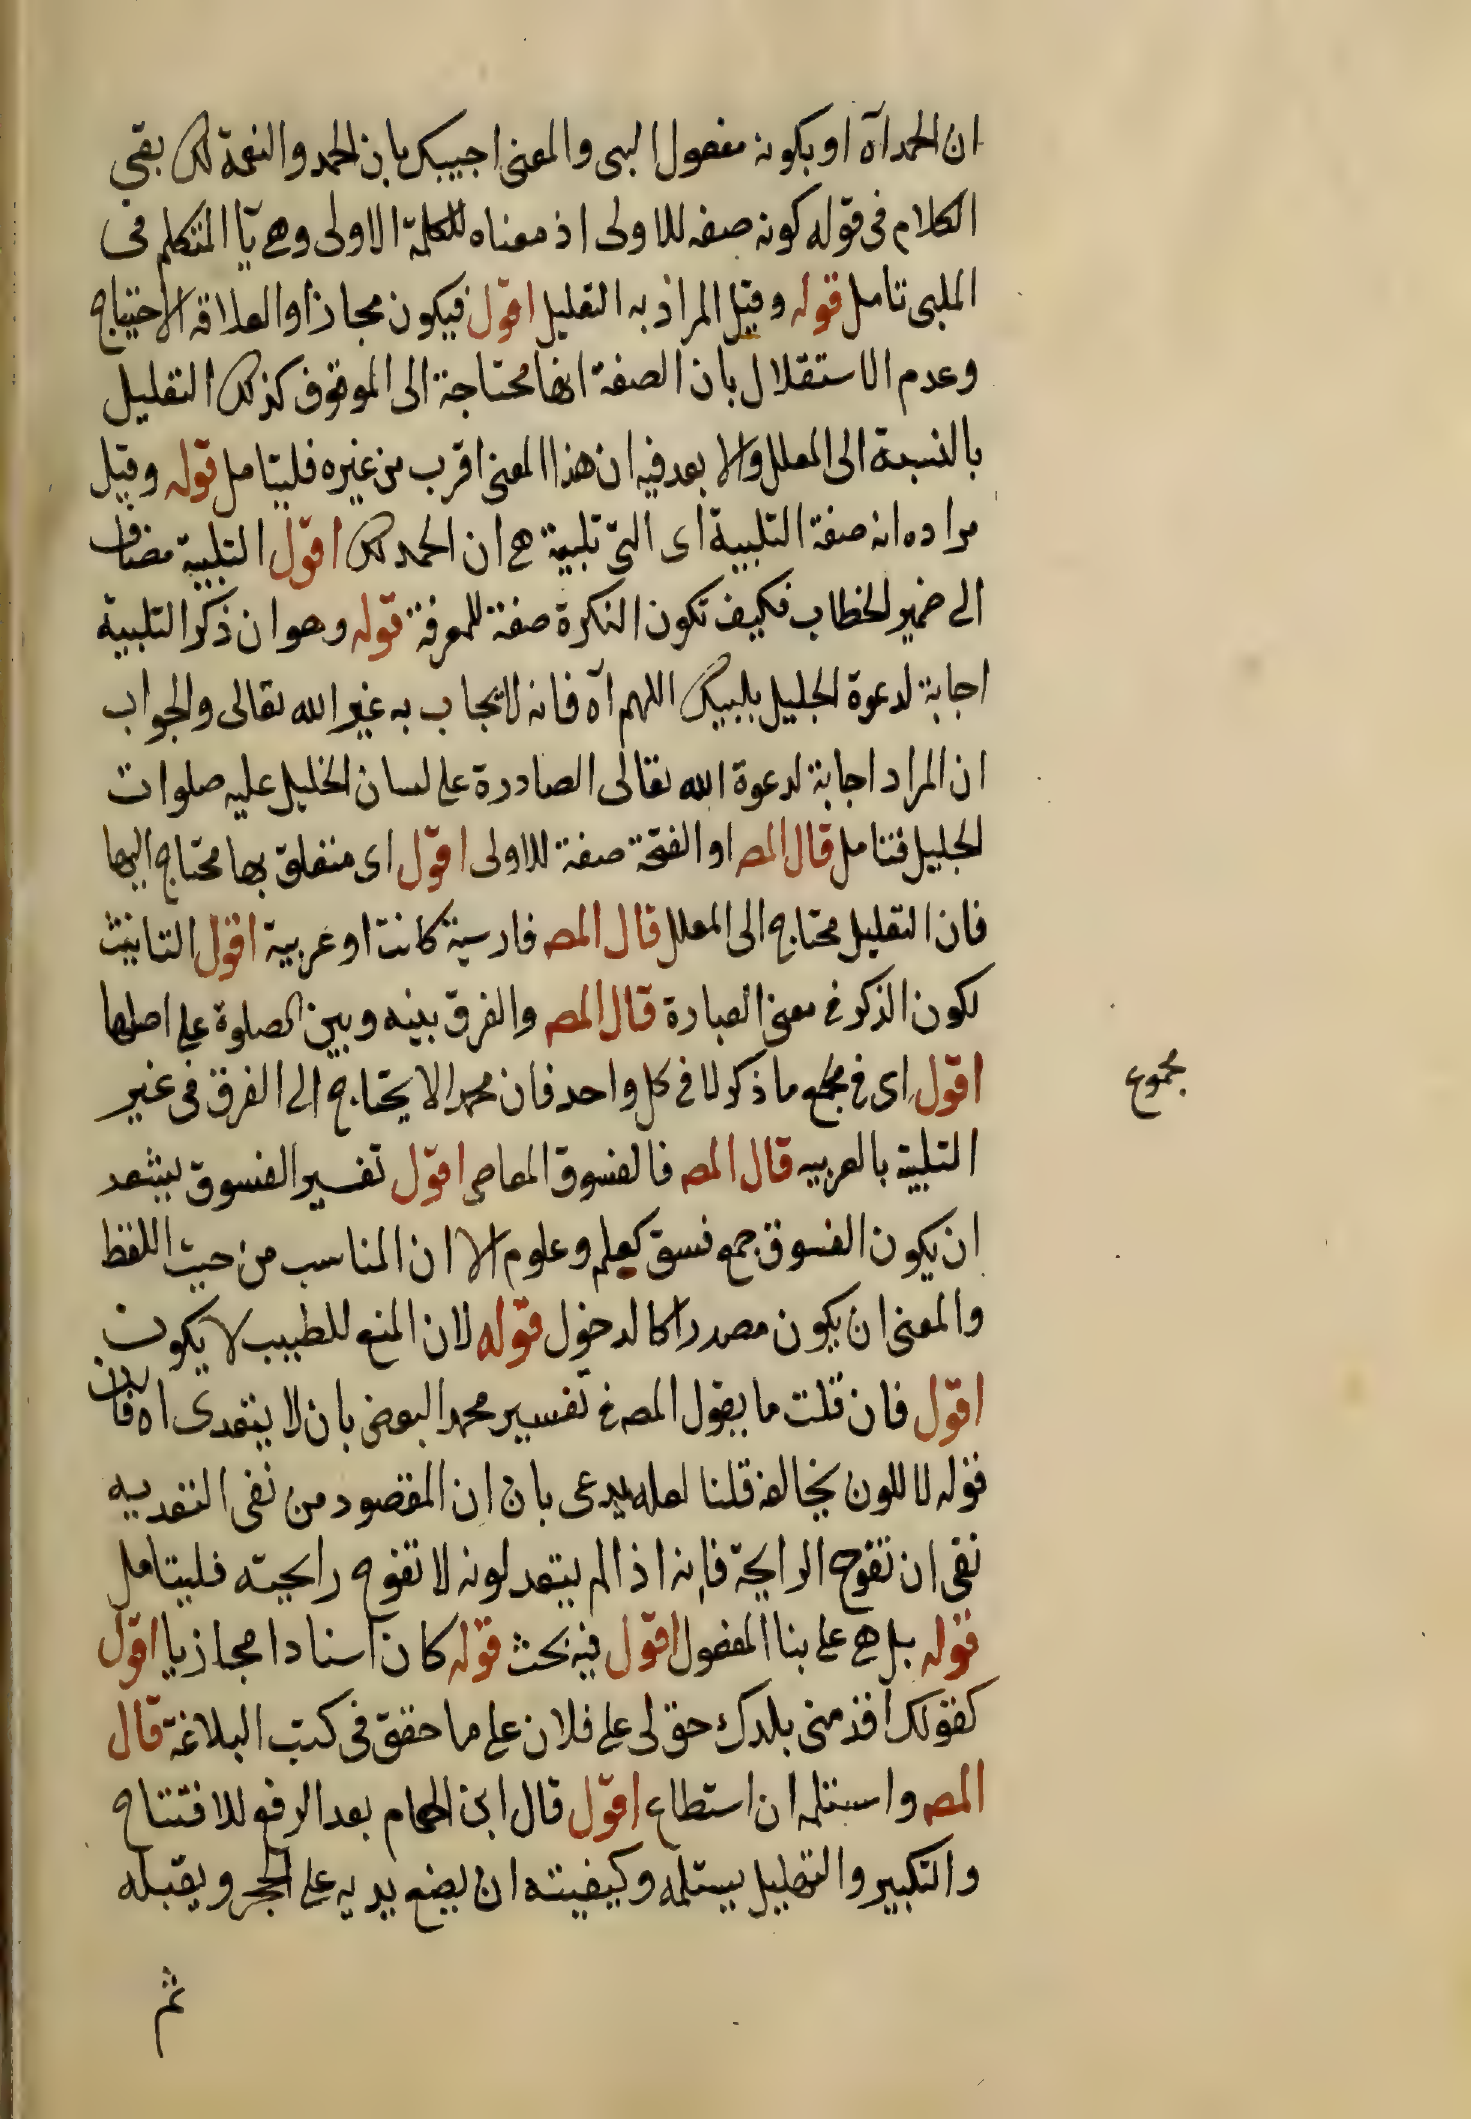 ان الحمد اه او بكونه مفعول البى والمعنى اجيبك بان الحمد والنعمة لك بقي
الكلام فى قوله كونه صفه للاولى اذ معناه للكلمة الاولى وهى يآ المتكلم فى
الملبى تامل قوله وقيل المراد به التعليل اقول فيكون مجازا والعلاقه الاحتياج
وعدم الاستقلال بان الصفة انها محتاجة الى الموقوف كذلك التعليل
بالنسبة الى المعلل والا بعد فيه ان هذا المعنى اقرب من غيره فليتامل قوله وقيل
مراده انه صفة التلبية اى التى تلبية هى ان الحمد لك اقول التلبية مضاف
الى ضمير الخطاب فكيف تكون النكرة صفة للمعرفة قوله وهو ان ذكر التلبية
اجابة لدعوة الجليل بلبيك اللهم آه فانه لا يجاب به غير الله تعالى والجواب
ان المراد اجابة لدعوة الله تعالى الصادرة على لسان الخليل عليه صلوات
الجليل فتامل قال المصـ او الفتحة صفة للاولى اقول اى متعلق بها محتاج اليها
فان التعليل محتاج الى المعلل قال المصـ فارسية كانت او عربية اقول التانيث
لكون الذكر فى معنى العبارة قال المصـ والفرق بينه وبين الصلوة على اصلهما
اقول اى فى مجمع ما ذكر لا فى كل واحد فان محمدا لا يحتاج الى الفرق فى غير
مجموع
التلبية بالعربيه قال المصـ فالفسوق المعاصى اقول تفسير الفسوق يشعر
ان يكون الفسوق جمع فسق كعلم وعلوم الا ان المناسب من حيث اللفظ
والمعنى ان يكون مصدرا كالدخول قوله لان المنع للطيب لا يكون
اقول فان قلت ما يقول المصـ فى تفسير محمد البعض بان لا يتعدى اه فان
قوله لا للون يخالفه قلنا لعله يدعى بان ان المقصود من نفى التعديه
نفى ان تفوح الرايحة فانه اذا لم يتعد لونه لا تفوح رايحيته فليتامل
قوله بل هى على بنا المفعول اقول فيه بحث قوله كان اسنادا مجازيا اقول
كقولك اقدمنى بلدك حق لى على فلان على ما حقق فى كتب البلاغة قال
المصـ واستلمه ان استطاع اقول قال ابن الهمام بعد الرفع للافتتاح
والتكبير والتهليل يستلمه وكيفيته ان يضع يديه على الحجر ويقبله
ثم